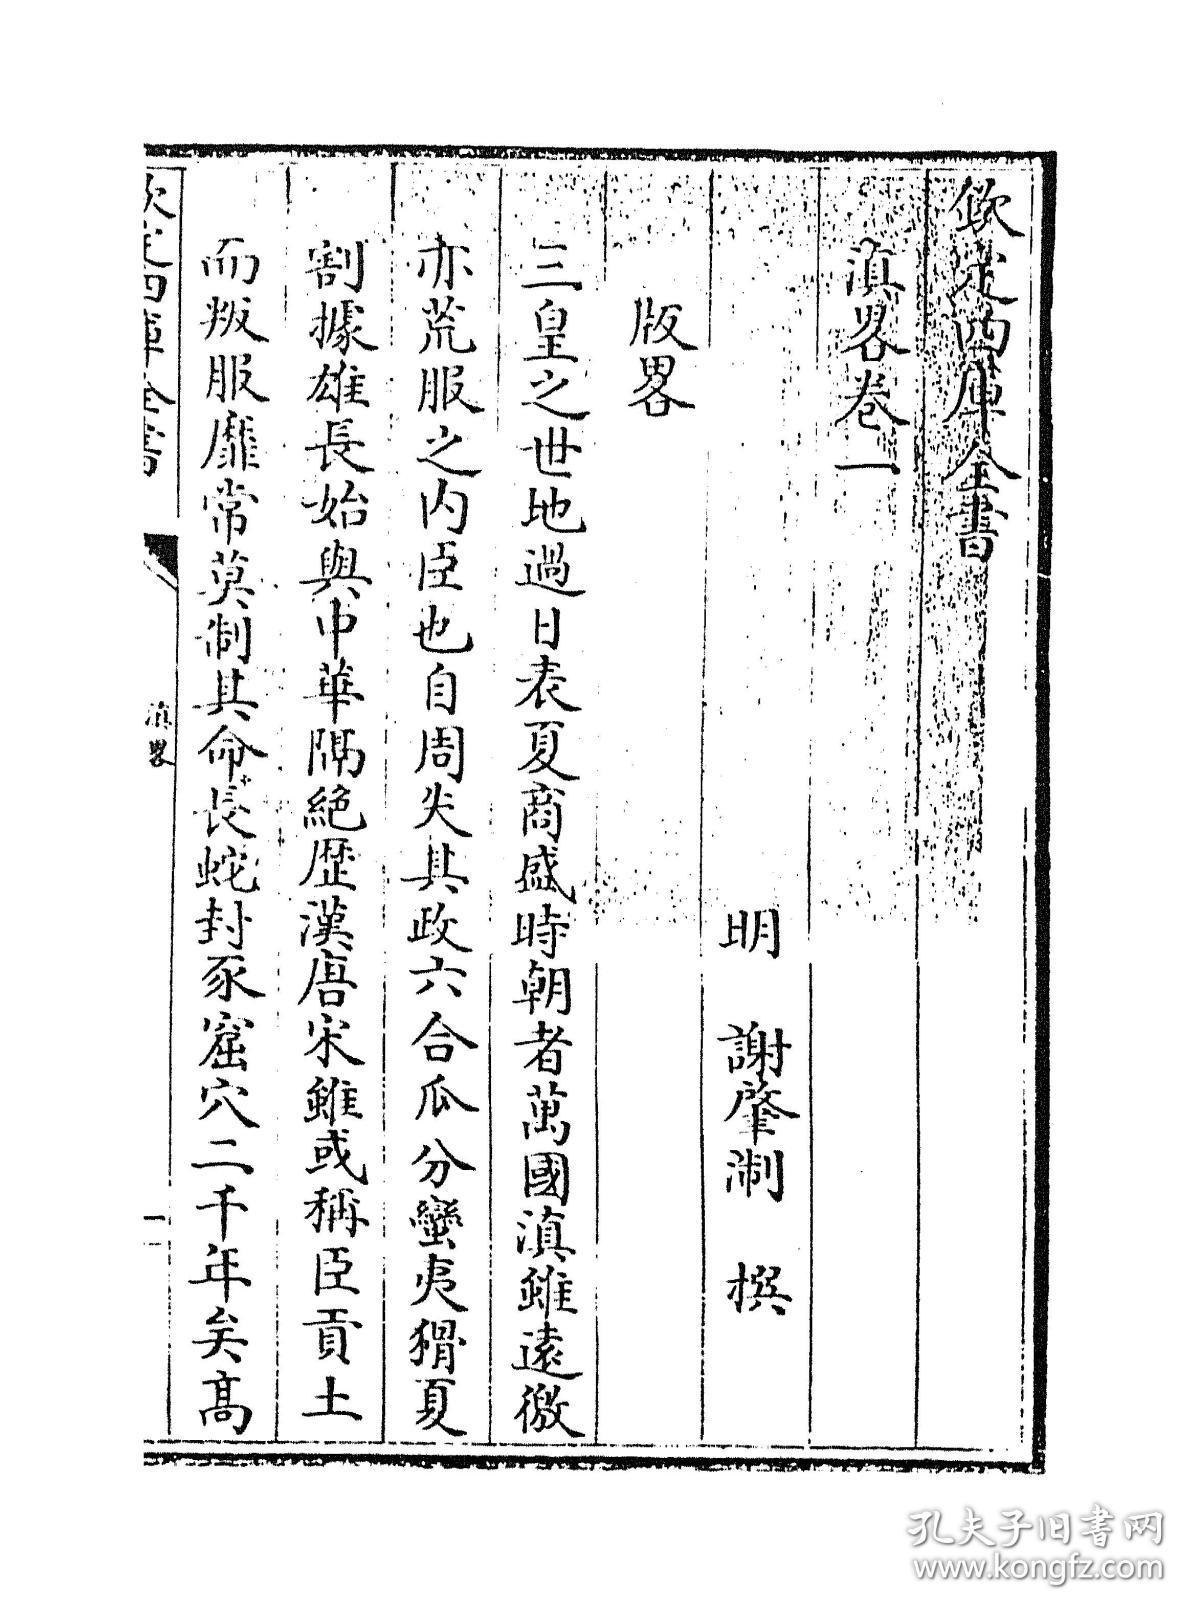 欽定四庫全書
滇畧卷一
明 謝肇淛 撰
版畧
三皇之世地過日表夏商盛時朝者萬國滇雖遠徼
亦荒服之内臣也自周失其政六合瓜分蠻夷猾夏
割據雄長始與中華隔絶歴漢唐宋雖或稱臣貢土
而叛服靡常莫制其命長蛇封豕窟穴二千年矣髙
欽定四庫全書
滇畧
一
孔夫子旧书网
www.kongfz.com